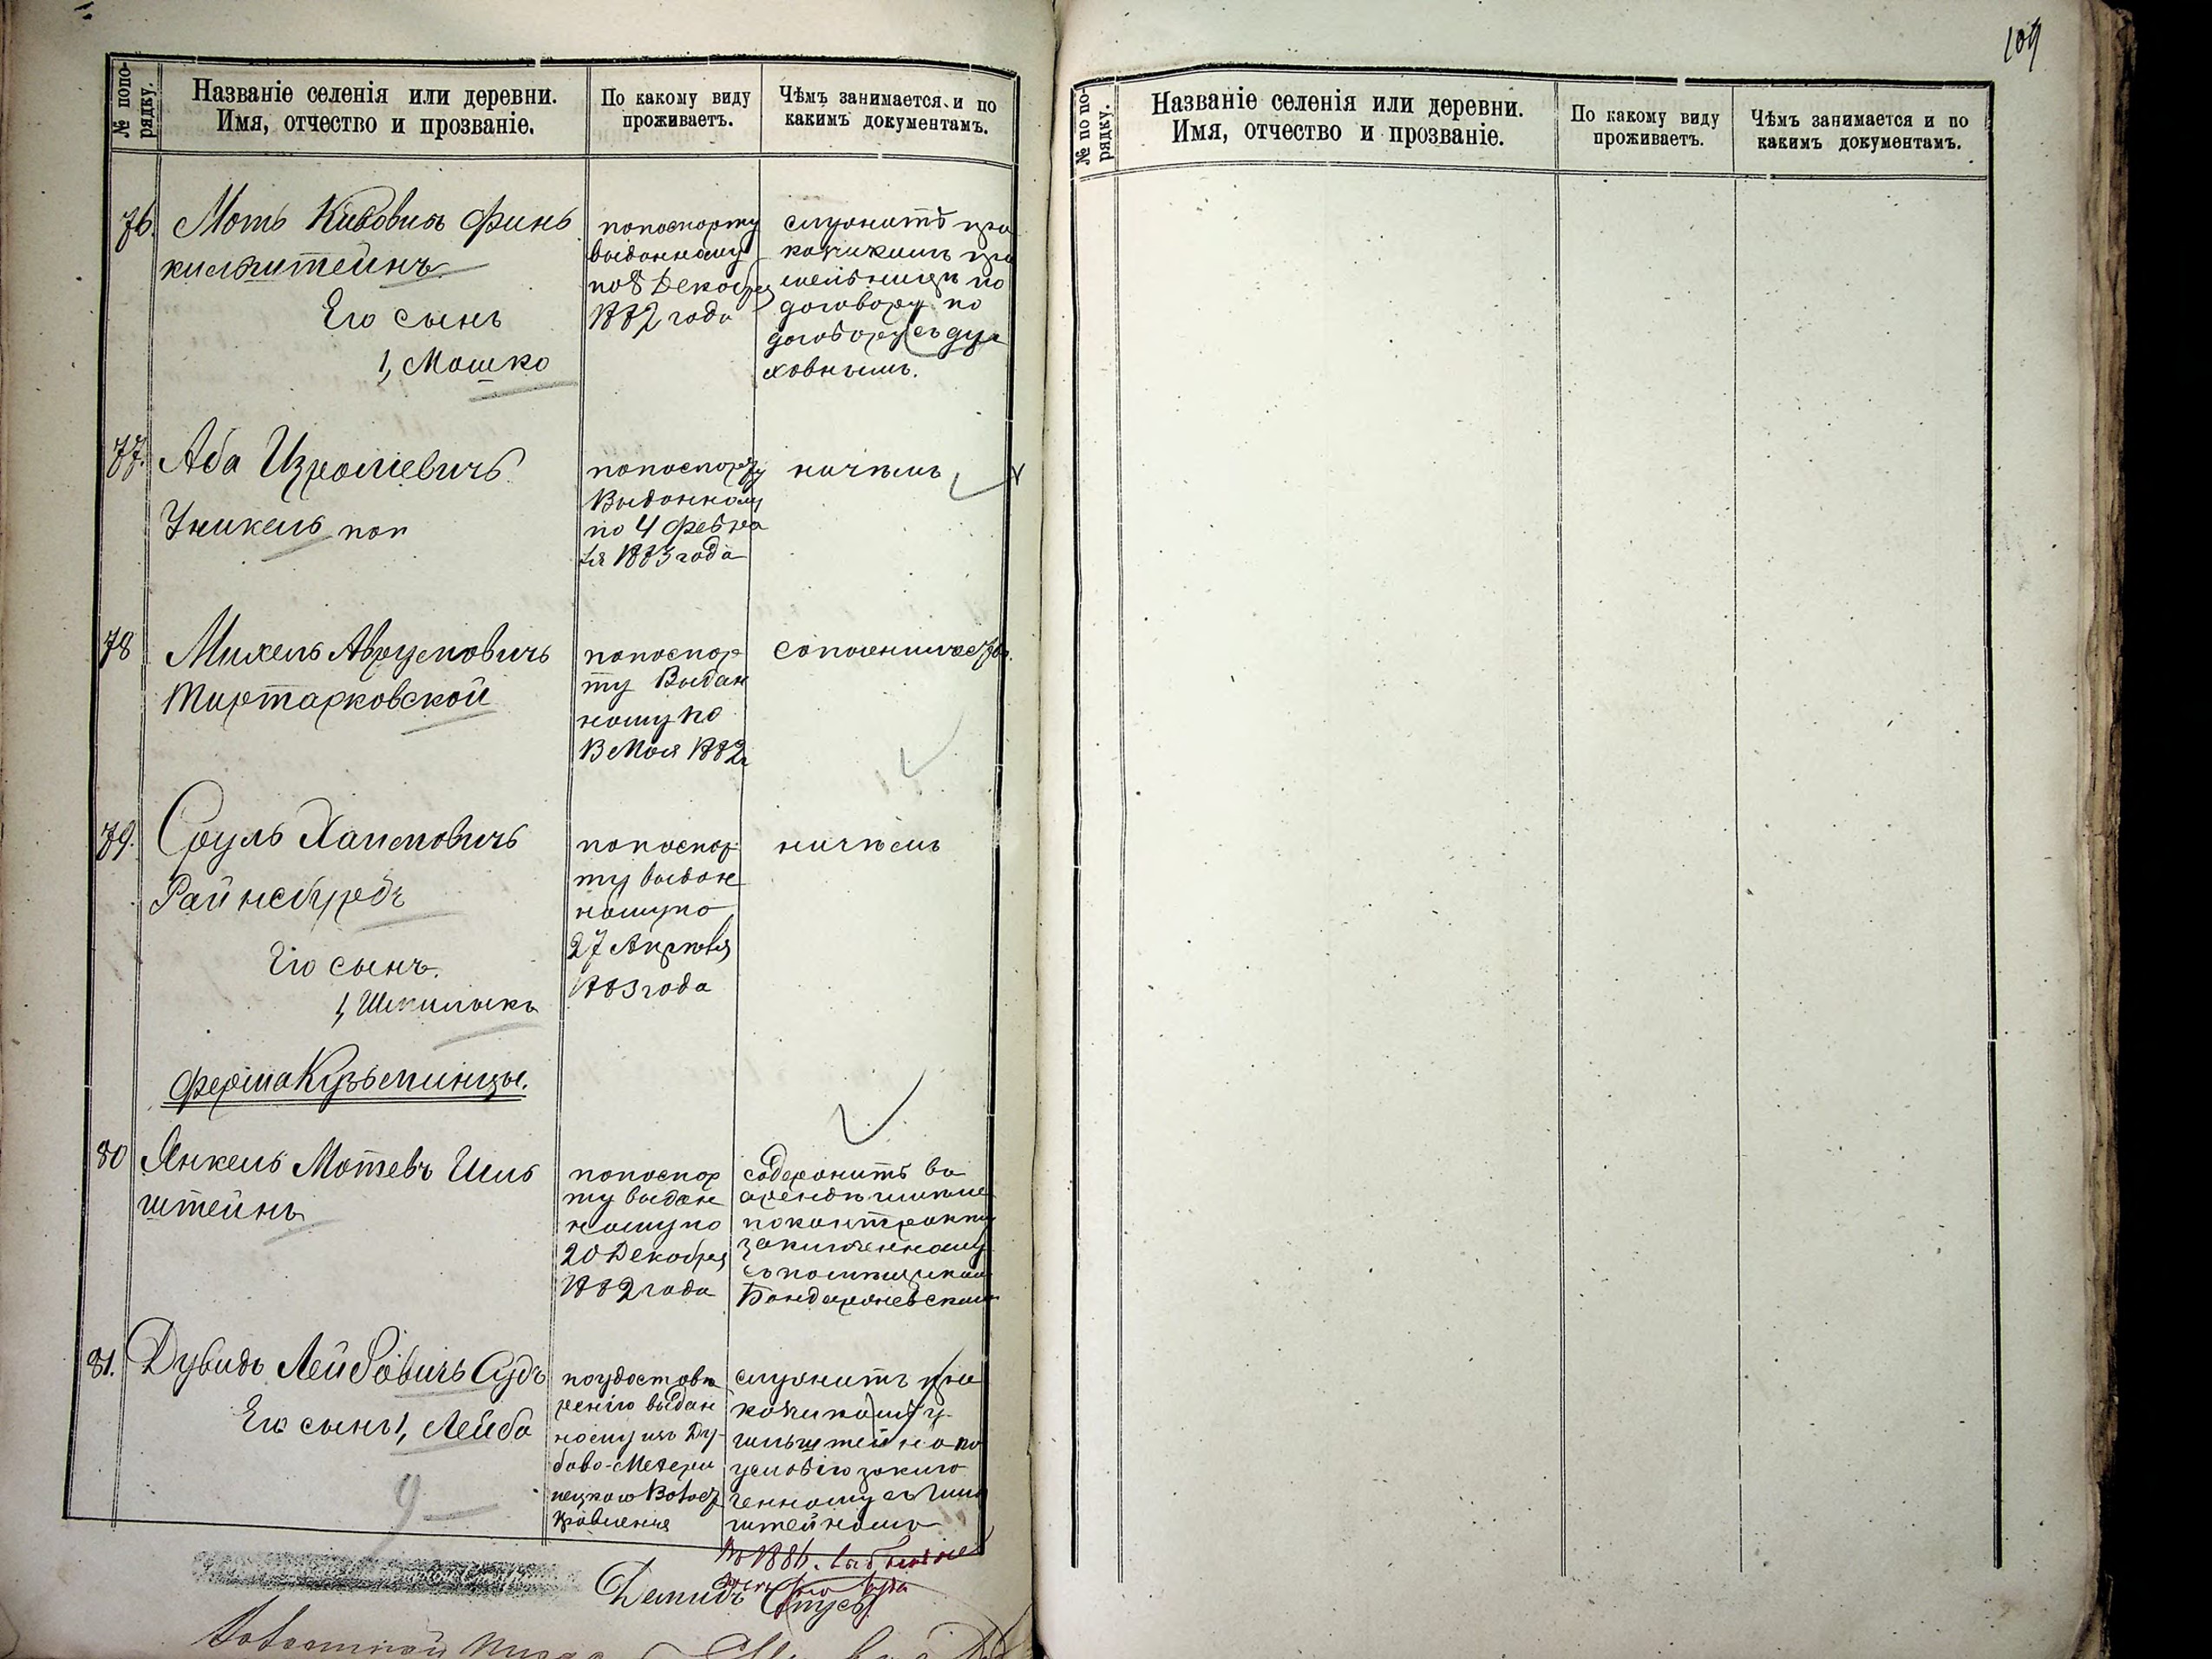 109
№ по по-
рядку.
Названіе селенія или деревни.
Имя, отчество и прозваніе.
По какому виду
проживаетъ.
Чѣмъ занимается и по
какимъ документамъ.
76.
Моть Кивовичъ Финь
кильштейнъ
Его сынъ
1, Мошко
попаспорту
выданному
по 8 Декабря
1882 года
служитъ при
кащикомъ при
мельницѣ по
договору по
договору съ ду
ховнымъ.
77.
Аба Изролievичъ
поп
попаспорту
Выданному
по 4 Февра
ля 1883 года
ничѣмъ
78
Михель Аврумовичъ
Тиртарковской
попаспор
ту Выдан
ному по
13 Мая 1882 г
79.
Сруль Хаимовичъ
Райнсбурдъ
Его сынъ.
1,
попаспор
ту выдан
ному по
27 Апрѣля
1883 года
ничѣмъ
Ферма Кузьминцы.
80
Янкель Мотевъ
штейнъ
попаспор
ту выдан
ному по
20 Декабря
1882 года
содержитъ въ
арендѣ
по контракту
заключенному
съ помѣщикомъ
81.
Дувидъ Лейбовичъ Судъ
Его сынъ 1, Лейба
по удостовѣ
ренію выдан
ному изъ Ду-
бово-
Волос.
Правленія
служитъ при
кащикомъ у
штейна по
условію заклю
ченному съ
штейномъ
9 —
Демидъ
№ по по-
рядку.
Названіе селенія или деревни.
Имя, отчество и прозваніе.
По какому виду
проживаетъ.
Чѣмъ занимается и по
какимъ документамъ.